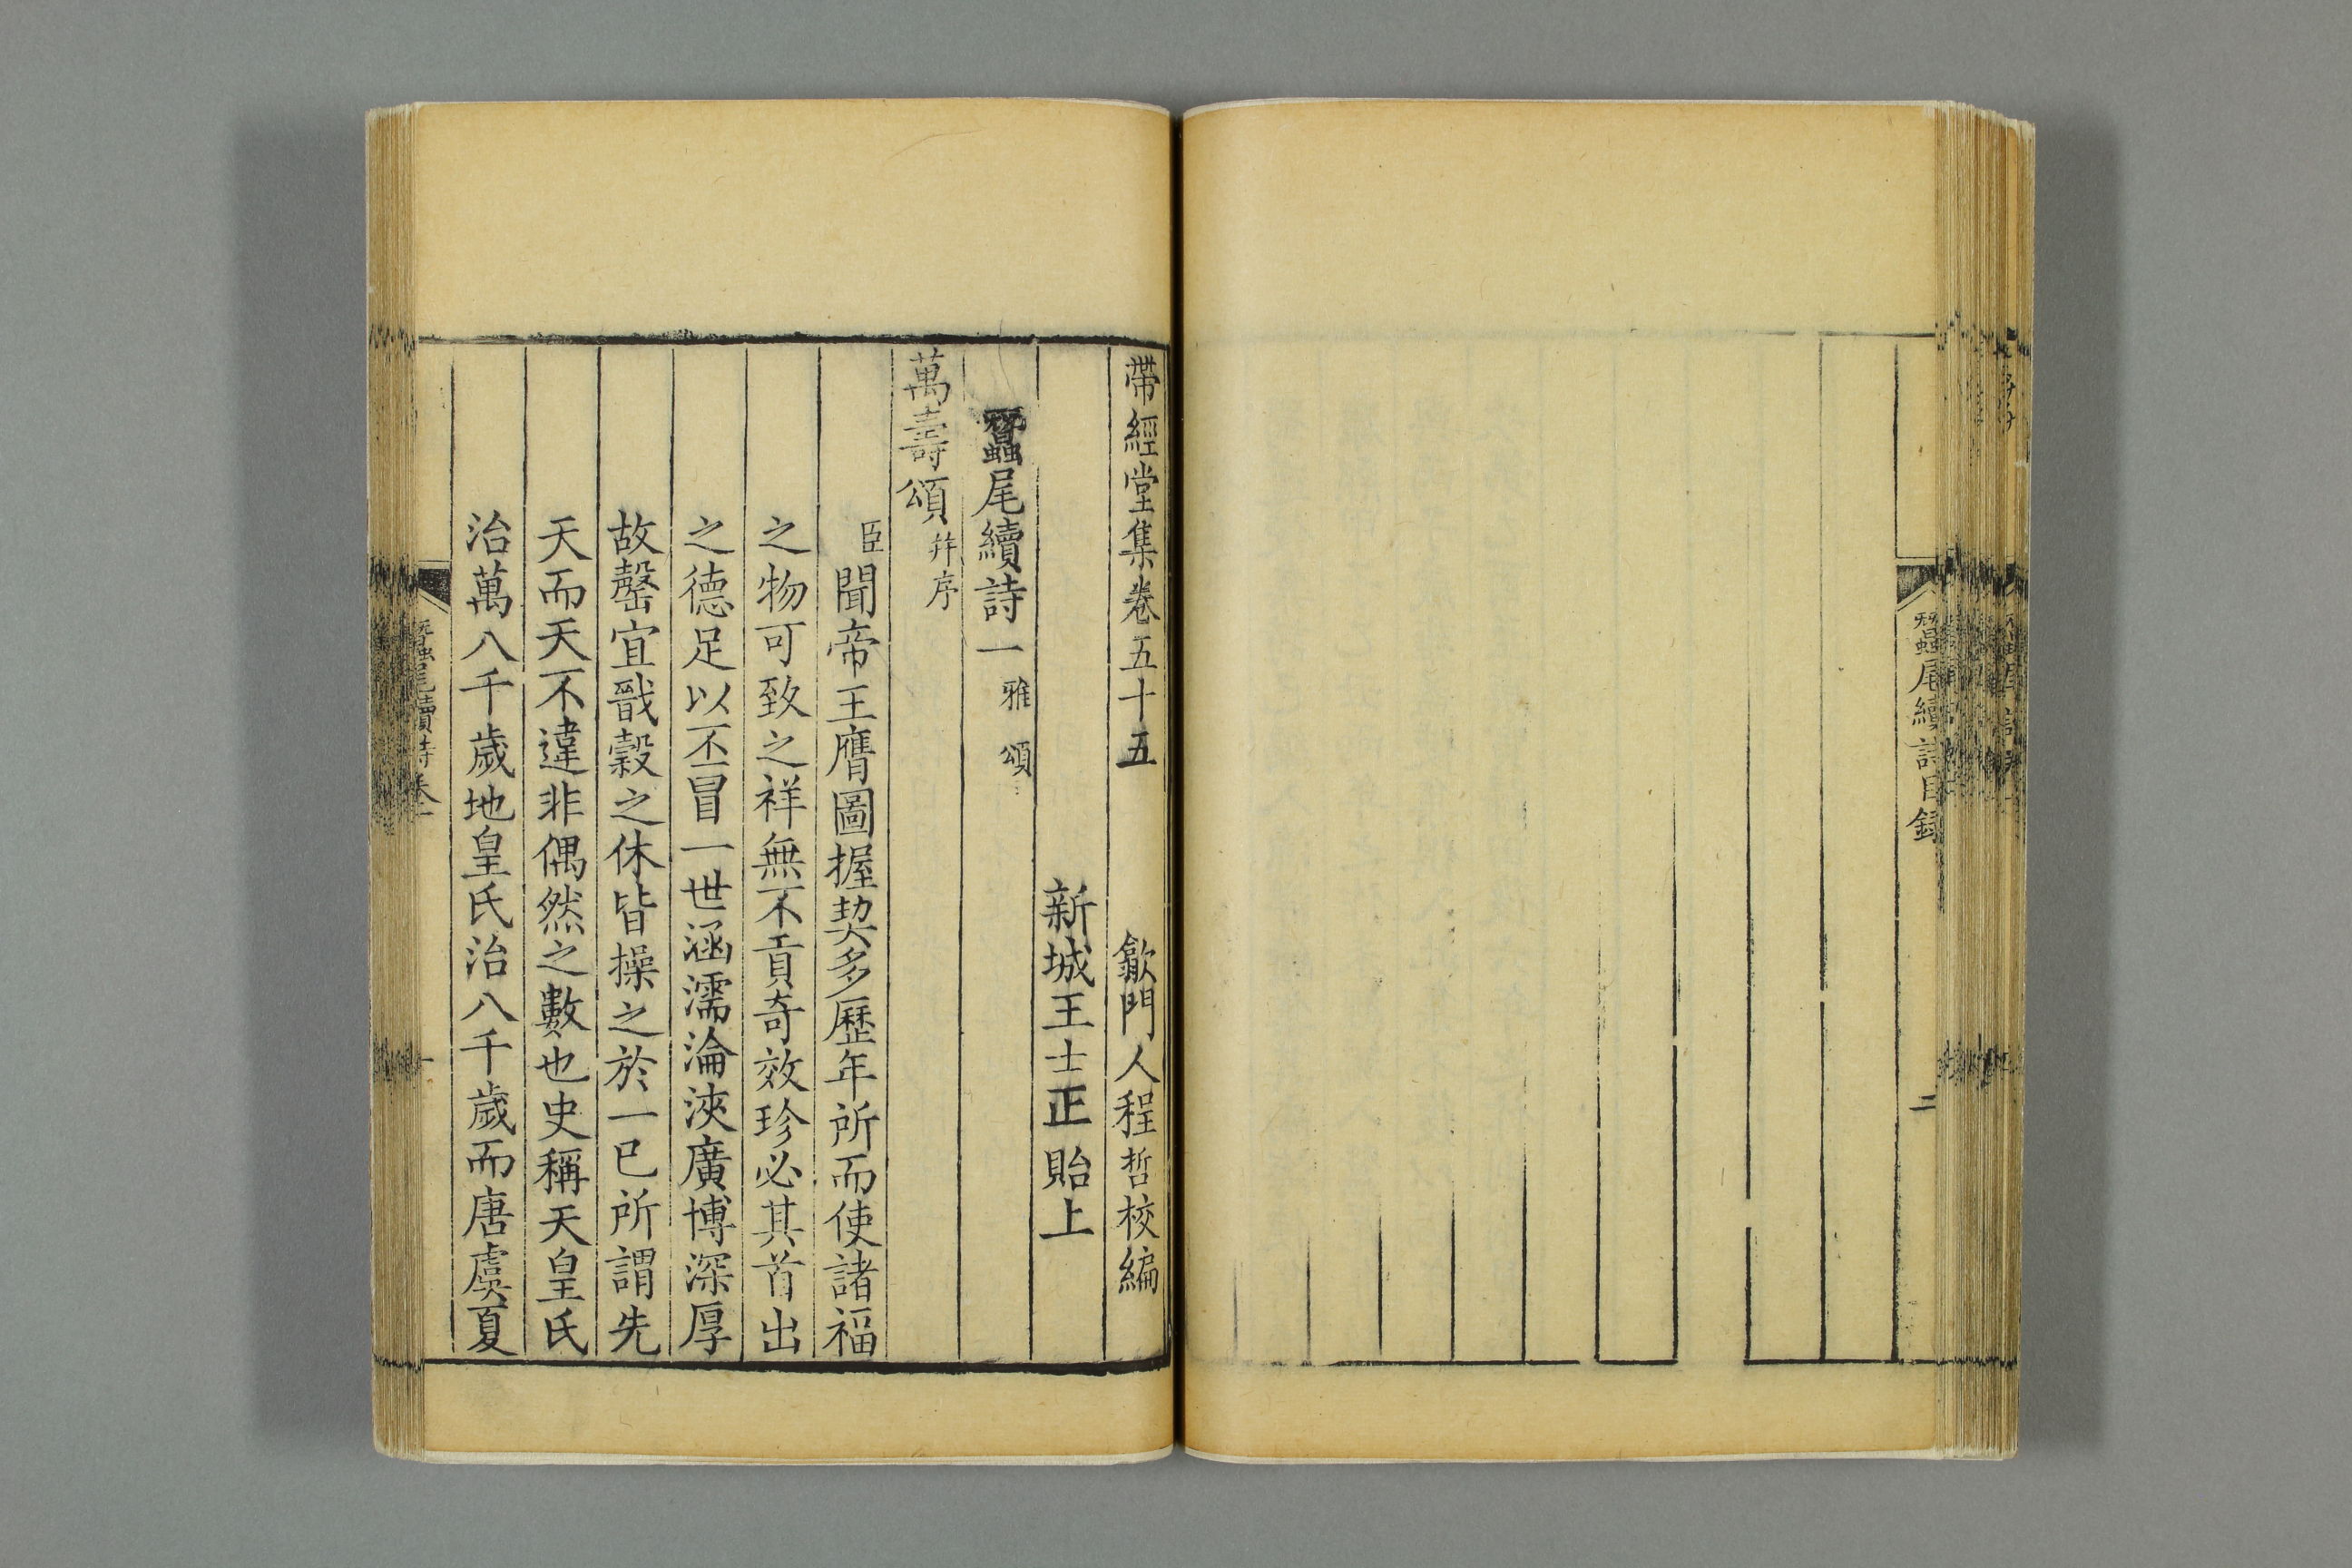 蠶尾續詩目錄
二
帶經堂集卷五十五 歙門人程哲校編
新城王士正貽上
蠶尾續詩一 雅 頌
萬壽頌 并序
臣聞帝王膺圖握契多歷年所而使諸福
之物可致之祥無不貢奇效珍必其首出
之德足以丕冒一世涵濡淪浹廣博深厚
故罄宜戩穀之休皆操之於一已所謂先
天而天不違非偶然之數也史稱天皇氏
治萬八千歲地皇氏治八千歲而唐虞夏
蠶尾續詩卷一
一